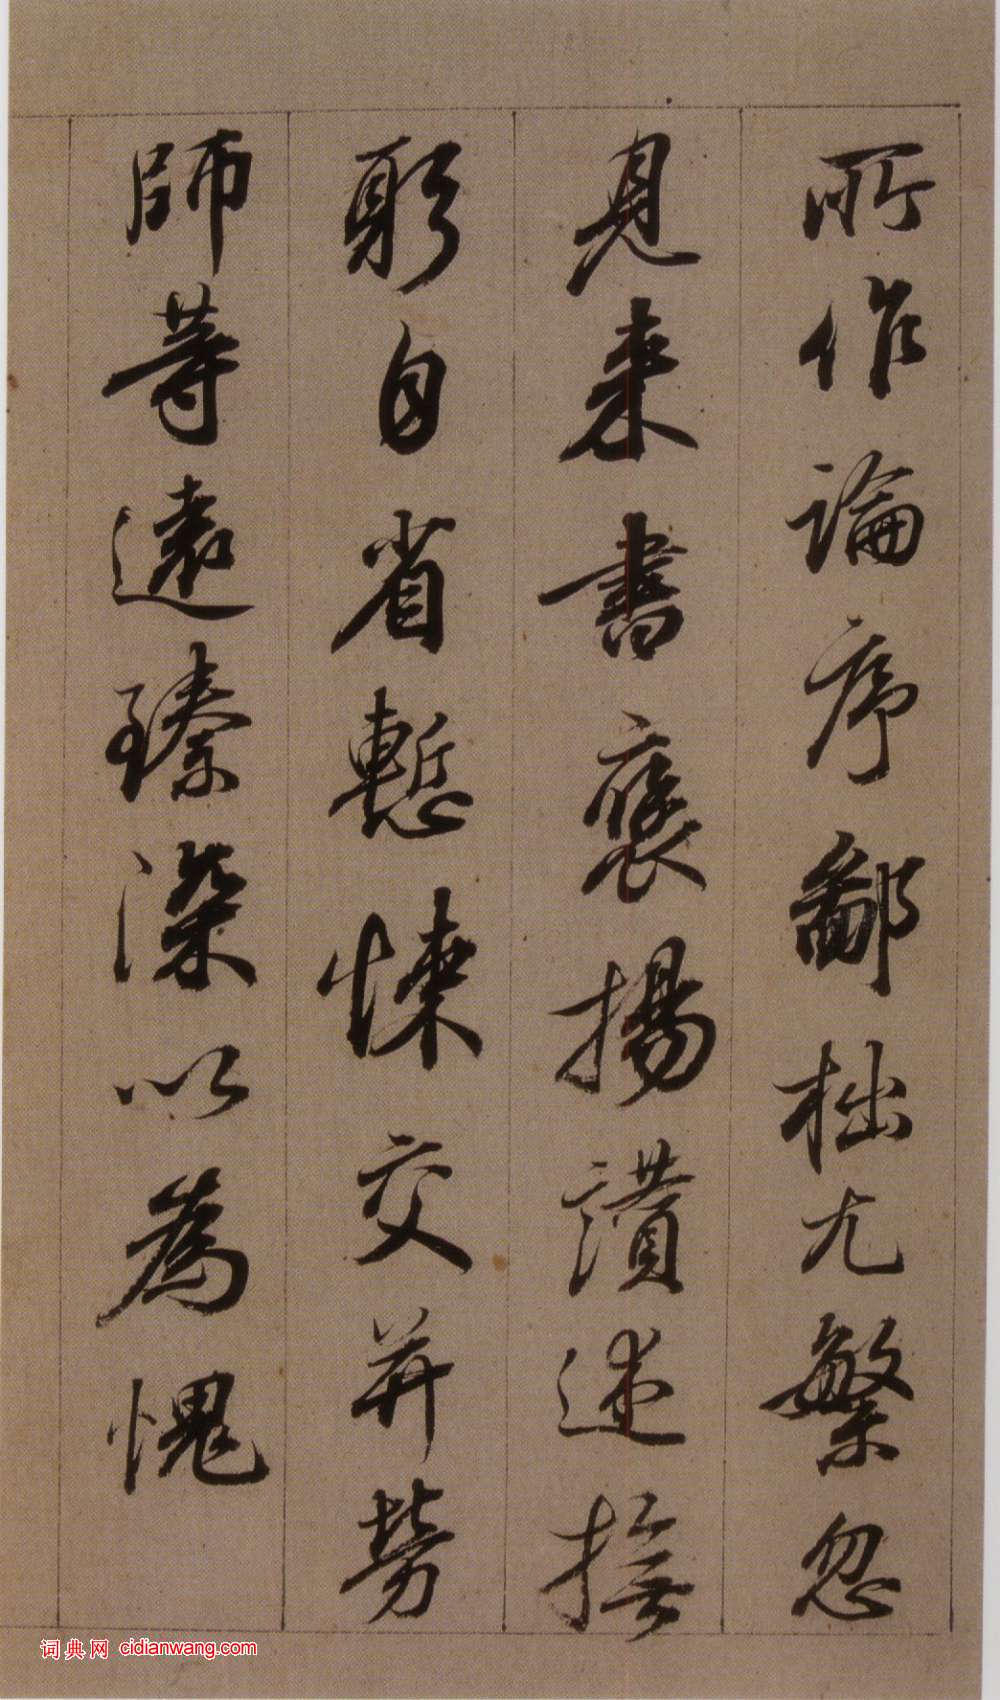 所作論序鄙拙尤繁忽
見來書褒揚讃述撫
躬自省慙悚交并勞
師等遠臻深以為愧
词典网 cidianwang.com